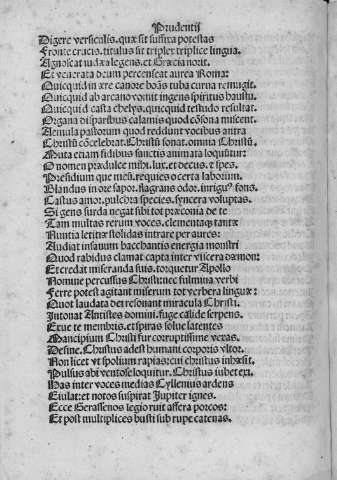 Prudentij
Digere versiculis. quæ sit suffixa potestas
Fronte crucis. titulus sit triplex triplice lingua.
Agnoscat iudæa legens. et Græcia norit.
Et venerata deum percenseat aurea Roma:
Quicquid in ære canore boãs tuba curua remugit.
Quicquid ab arcano vomit ingens spiritus haustu.
Quicquid casta chelys. quicquid testudo resultat.
Organa disparibus calamis quod cõsona miscent.
Aemula pastorum quod reddunt vocibus antra
Christũ cõcelebrat. Christũ sonat. omnia Christũ.
Muta etiam fidibus sanctis animata loquũtur:
O nomen prædulce mihi. lux. et decus. et spes.
Presidium que meũ. requies o certa laborum.
Blandus in ore sapor. flagrans odor. irriguꝰ fons.
Castus amor. pulchra species. syncera voluptas.
Si gens surda negat sibi tot præconia de te
Tam multas rerum voces. elementaqꝫ tantæ
Nuntia letitiæ stolidas intrare per aures:
Audiat insanum bacchantis energia monstri
Quod rabidus clamat capta inter viscera dæmon:
Et credat miseranda suis. torquetur Apollo
Nomine percussus Christi: nec fulmina verbi
Ferre potest. agitant miserum tot verbera linguæ:
Quot laudata dei resonant miracula Christi.
Intonat Antistes domini. fuge callide serpens.
Exue te membris. et spiras solue latentes
Mancipium Christi fur corruptissime vexas.
Desine. Christus adest humani corporis vltor.
Non licet vt spolium rapias: cui christus inhæsit.
Pulsus abi ventose loquitur. Christus iubet exi.
Has inter voces medias Cyllenius ardens
Eiulat: et notos suspirat Jupiter ignes.
Ecce Gerassenos legio ruit affera porcos:
Et post multiplices busti sub rupe catenas.